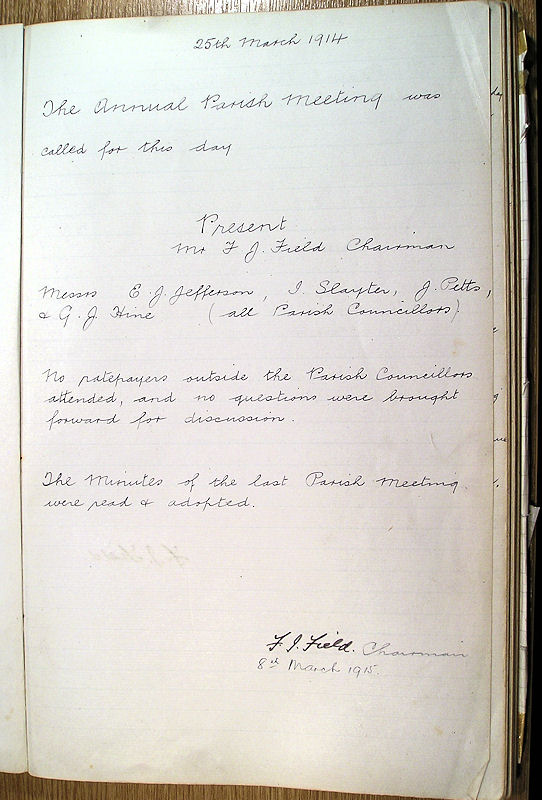 25th March 1914
The Annual Parish Meeting was
called for this day
Present
Mr F J. Field Chairman
Messrs E. J. Jefferson, I. Slayter, J. Petts,
& G. J. Hine (all Parish Councillors)
No ratepayers outside the Parish Councillors
attended, and no questions were brought
forward for discussion.
The Minutes of the last Parish Meeting
were read & adopted.
F. J. Field. Chairman
8th March 1915.